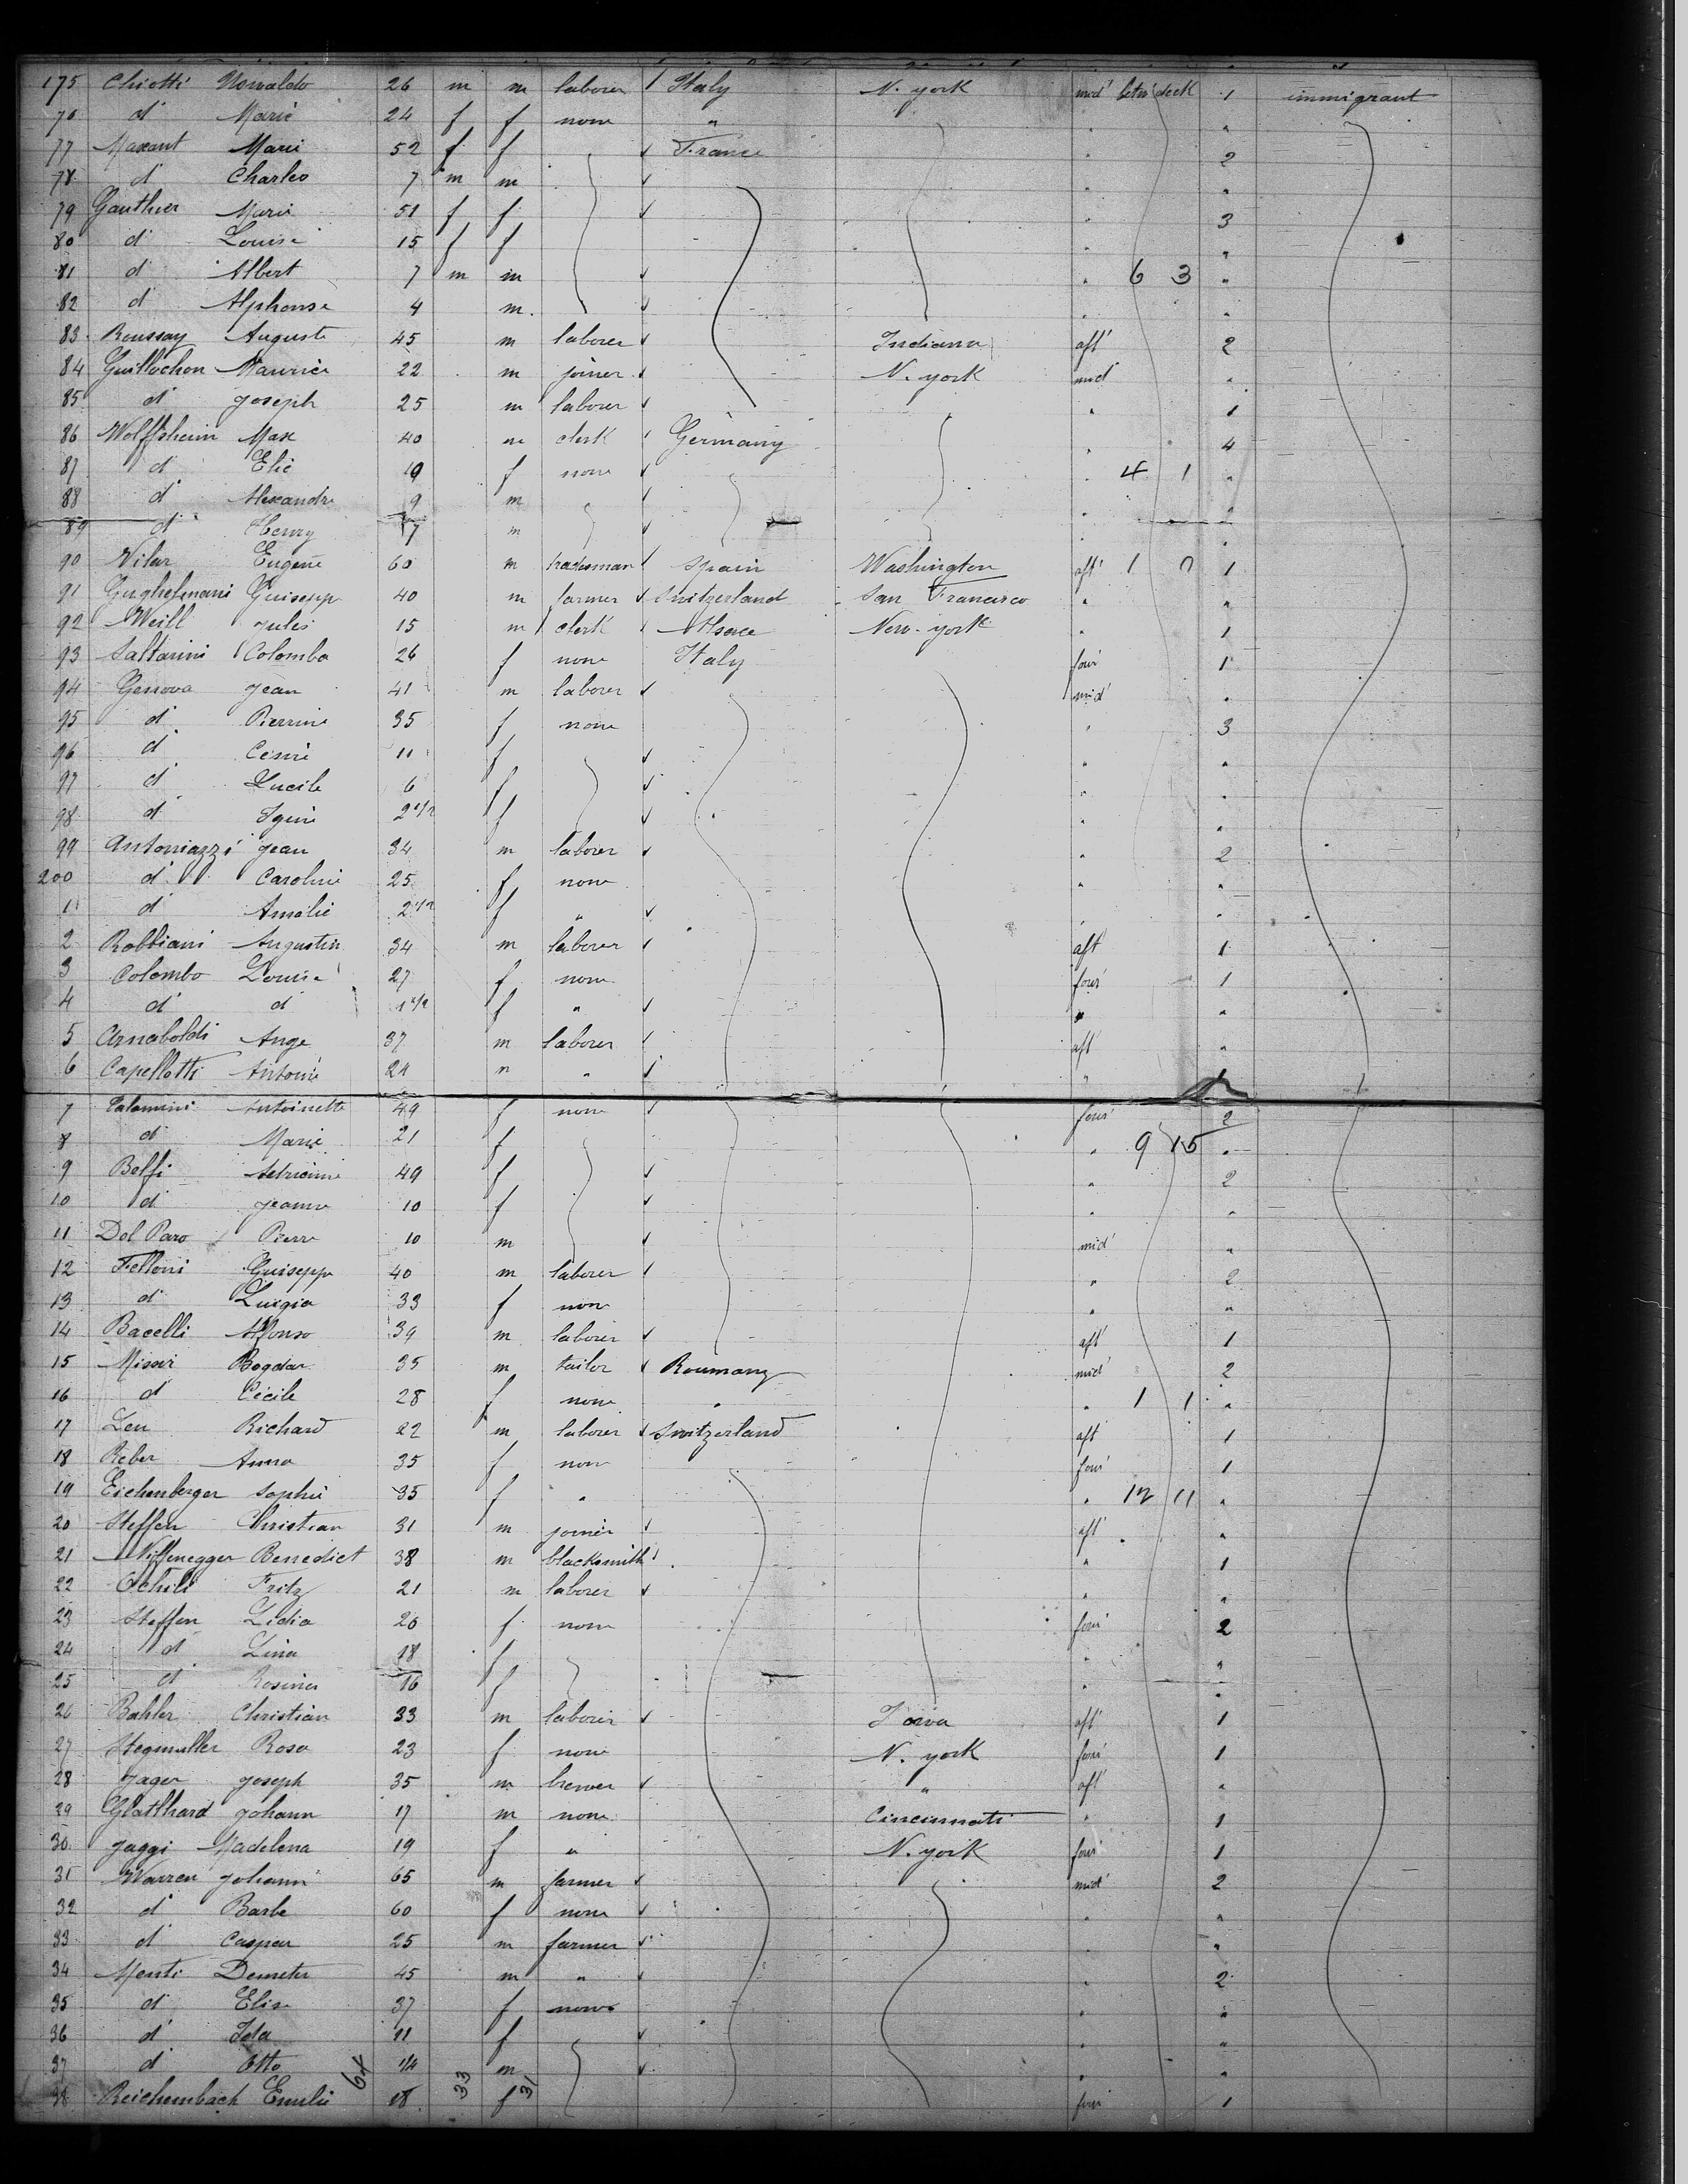 175 Chiotti Osvaldo 26 m m laborer Italy N. york mid' betw deck 1 immigrant
76 d' Marie 24 f f none " " "
77 Maxant Marie 52 f f France " 2
78 d' Charles 7 m m " "
79 Gauthier Marie 51 f f " 3
80 d' Louise 15 f f " "
81 d' Albert 7 m m " 6 3 "
82 d' Alphonse 4 m " "
83 Roussay Auguste 45 m laborer Indiana aft' 2
84 Guillochon Maurice 22 m joiner N. york mid' "
85 d' Joseph 25 m laborer " 1
86 Wolffsheim Max 40 m clerk Germany " 4
87 d' Elie 19 f none " 4 1 "
88 d' Alexandre 9 m " "
89 d' Henry 7 m " "
90 Vilar Eugene 60 m tradesman Spain Washington aft' 1 0 1
91 Guglielmani Guisepp 40 m farmer Switzerland San Francisco " "
92 Weill Jules 15 m clerk Alsace New-york " 1
93 Saltarini Colomba 26 f none Italy four' 1
94 Genova Jean 41 m laborer mid' "
95 d' Pierrine 35 f none " 3
96 d' 11 f " "
97 d' Lucile 6 f " "
98 d' 2 1/2 f " "
99 Antoniazzi Jean 34 m laborer " 2
200 d' Caroline 25 f none " "
1 d' Amalie 2 1/2 f " " "
2 Robbiani Augustin 34 m laborer aft' 1
3 Colombo Louise 27 f none four' 1
4 d' d' 1 1/2 f " " "
5 Arnaboldi Ange 37 m laborer aft' "
6 Capellotti Antoine 24 m " " 1
7 Antoinette 49 f none four' 2
8 d' Marie 21 f " 9 15 "
9 Belfi 49 f " 2
10 d' Jeanne 10 f " "
11 Dol Paro Pierre 10 m mid' "
12 Felloni Guisepp 40 m laborer " 2
13 d' Luigia 33 f none " "
14 Bacelli Alfonso 39 m laborer aft' 1
15 Bogdan 35 m tailor Roumany mid' 2
16 d' Cecile 28 f none " " 1 1 "
17 Leu Richard 22 m laborer Switzerland aft' 1
18 Reber Anna 35 f none four' 1
19 Eichenberger Sophie 35 f " " 12 11 "
20 Steffen Christian 31 m joiner aft' "
21 Niffenegger Benedict 38 m blacksmith " 1
22 Fritz 21 m laborer " "
23 Steffen Lidia 20 f none four' 2
24 d' Lina 18 f " "
25 d' Rosina 16 f " "
26 Bahler Christian 33 m laborer Iowa aft' 1
27 Stegmuller Rosa 23 f none N. york four' 1
28 Jager Joseph 35 m brewer " aft' "
29 Glatthard Johann 17 m none Cincinnati " 1
30 Jaggi Madelena 19 f " N. york four' 1
31 Warren Johann 65 m farmer mid' 2
32 d' Barbe 60 f none " "
33 d' Caspar 25 m farmer " "
34 Menti Demeter 45 m " " 2
35 d' Elise 37 f none " "
36 d' Ida 11 f " "
37 d' Otto m " "
38 Reichembach Emilie 18 f four' 1
64 33 31